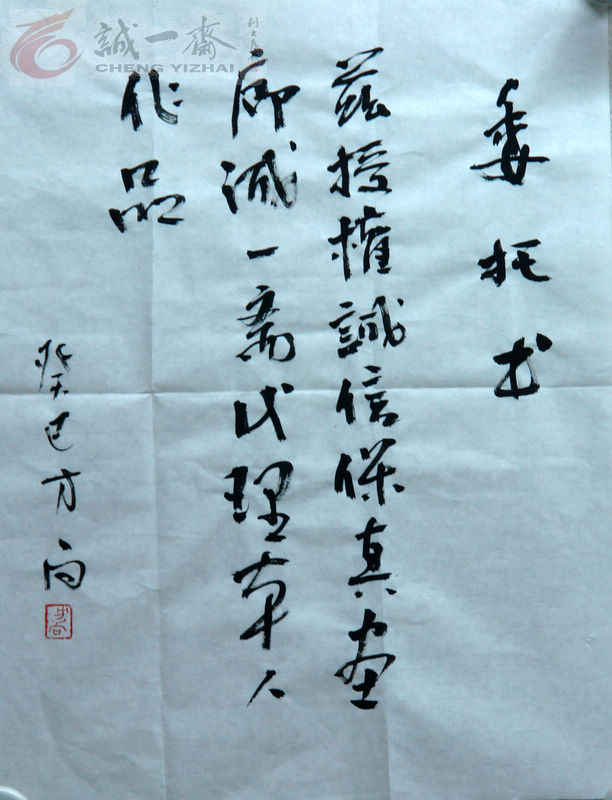 誠一齋
CHENG YIZHAI
委托书
兹授權誠信保真画
廊诚一斋代理本人
作品
癸巳方向